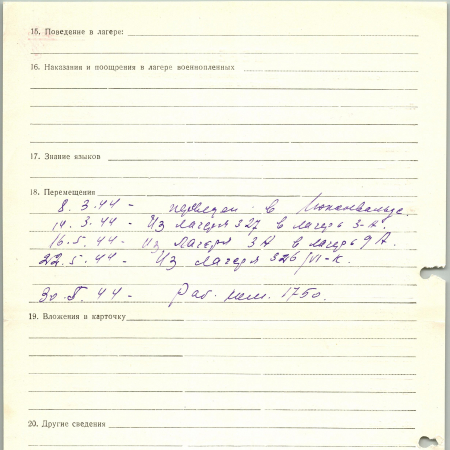 15. Поведение в лагере:
16. Наказания и поощрения в лагере военнопленных
17. Знание языков
18. Перемещения
8. 3. 44 - переведен в
14. 3. 44 - Из лагеря 327 в лагерь 3-А.
16. 5. 44 - Из лагеря 3А в лагерь 9А.
22. 5. 44 - Из лагеря 326/VI-К.
30. 5. 44 - Раб. ком. 1750.
19. Вложения в карточку
20. Другие сведения